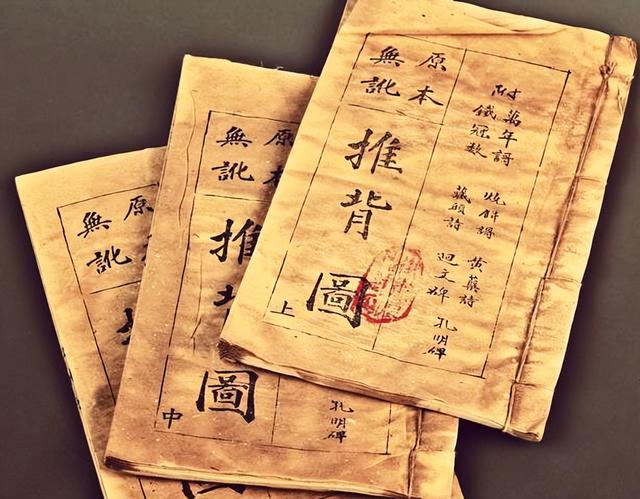 原本
無訛
推背圖
上
附
萬年謌
鐵冠數
燒餅謌
藏頭詩
黃蘗詩
迴文碑
孔明碑
原本
無訛
推背圖
中
孔明碑
原本
無訛